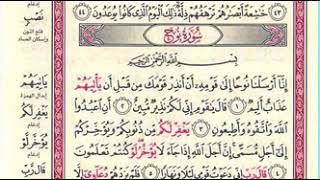 ٤٣ خَٰشِعَةً أَبْصَٰرُهُمْ تَرْهَقُهُمْ ذِلَّةٌ ذَٰلِكَ ٱلْيَوْمُ ٱلَّذِى كَانُوا۟ يُوعَدُونَ ٤٤
سُورَةُ نُوحٍ
بِسْمِ ٱللَّهِ ٱلرَّحْمَٰنِ ٱلرَّحِيمِ
إِنَّا أَرْسَلْنَا نُوحًا إِلَىٰ قَوْمِهِۦ أَنْ أَنذِرْ قَوْمَكَ مِن قَبْلِ أَن يَاتِيَهُمْ
عَذَابٌ أَلِيمٌ ١ قَالَ يَٰقَوْمِ إِنِّى لَكُمْ نَذِيرٌ مُّبِينٌ ٢ أَنِ ٱعْبُدُوا۟
ٱللَّهَ وَٱتَّقُوهُ وَأَطِيعُونِ ٣ يَغْفِر لَّكُم مِّن ذُنُوبِكُمْ وَيُوَخِّرْكُمْ
إِلَىٰ أَجَلٍ مُّسَمًّى إِنَّ أَجَلَ ٱللَّهِ إِذَا جَآءَ لَا يُوَخَّر لَّوْ كُنتُمْ تَعْلَمُونَ
٤ قَال رَّبِّ إِنِّى دَعَوْتُ قَوْمِى لَيْلًا وَنَهَارًا ٥ فَلَمْ يَزِدْهُمْ دُعَآءِىَ إِلَّا
نَصْبٍ
يَاتِيَهُمْ
إبدال الهمزة
يَغْفِر لَّكُم
إدغام
يُوَخَّر لَّوْ
إدغام
قَال رَّبِّ